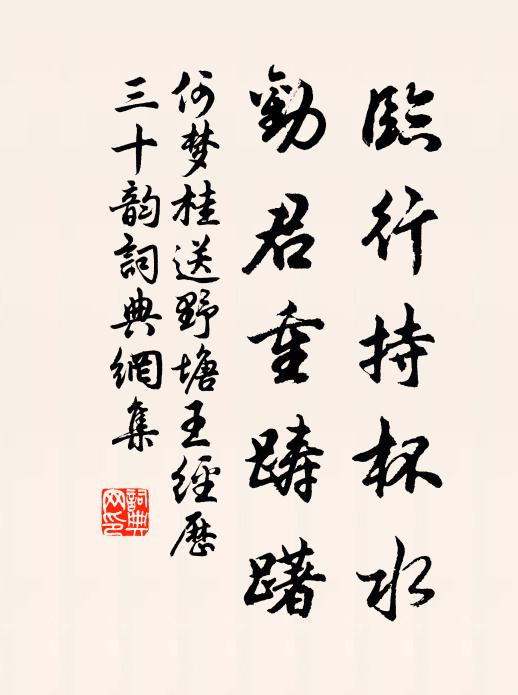 臨行持杯水
勸君重踌躇
何梦桂送野塘王經歷
三十韵詞典網集
詞典网印